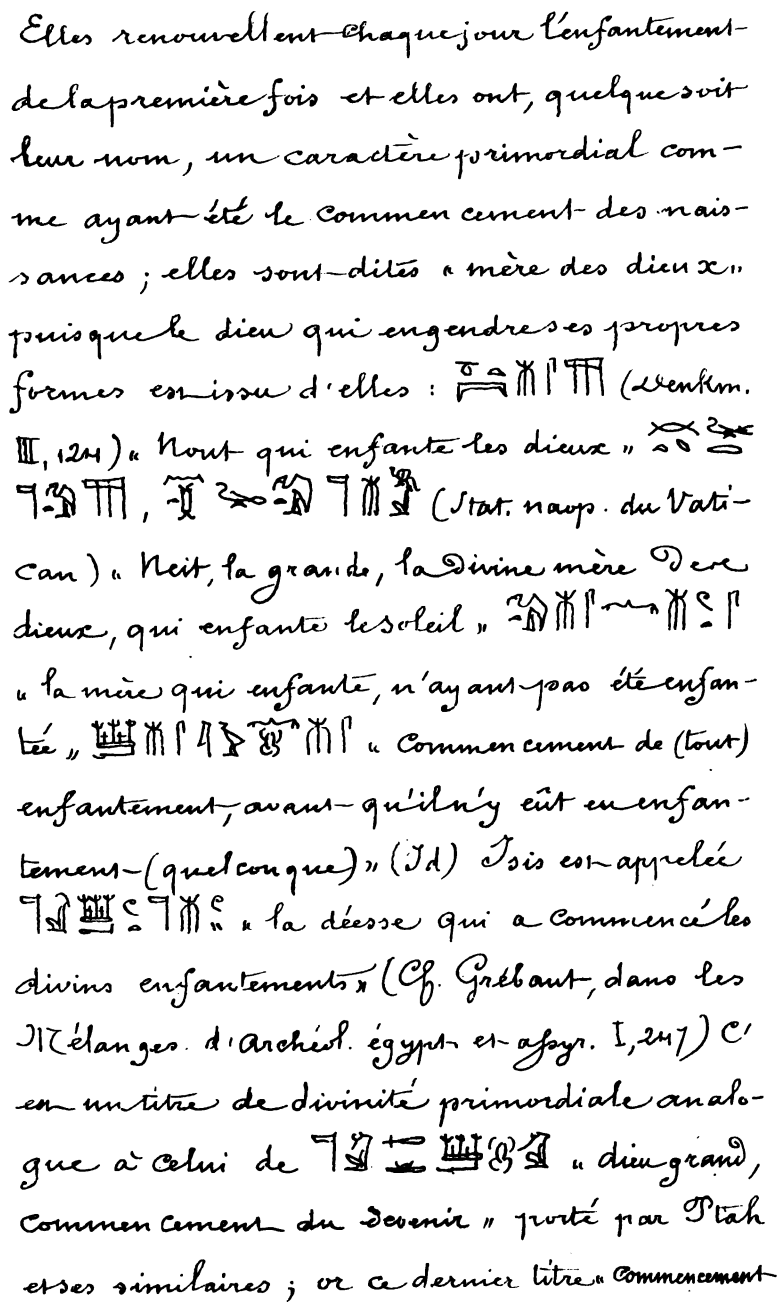 Elles renouvellent chaque jour l'enfantement
de la première fois et elles ont, quelque soit
leur nom, un caractère primordial com-
me ayant été le commencement des nais-
sances ; elles sont dites « mère des dieux »
puisque le dieu qui engendre ses propres
formes est issu d'elles : (Denkm.
III, 124) « Nout qui enfante les dieux »
, (Stat. naop. du Vati-
can) « Neit, la grande, la divine mère
dieux, qui enfante le soleil »
« la mère qui enfante, n'ayant pas été enfan-
tée » « Commencement de (tout)
enfantement, avant qu'il n'y eût eu enfan-
tement (quelconque) » (Id) Isis est appelée
« la déesse qui a commencé les
divins enfantements » (Cf. Grébaut, dans les
Mélanges d'Archéol. égypt et assyr. I, 247) C'
est un titre de divinité primordiale analo-
gue à celui de « dieu grand,
commencement du devenir » porté par Ptah
et ses similaires ; or ce dernier titre « Commencement